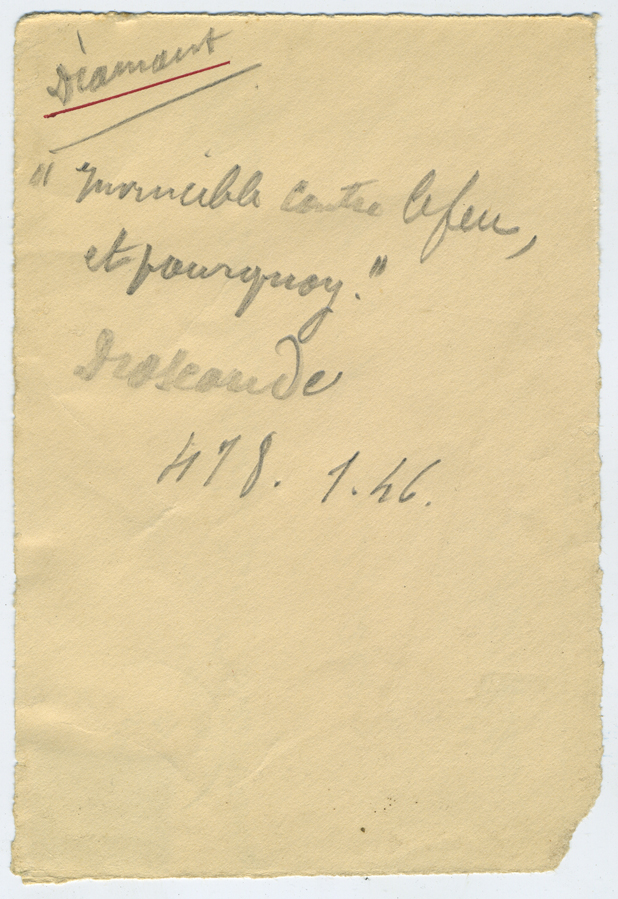 Diamant
"Invincible contre le feu,
et pourquoy."
Dioscoride
478. 1.46.